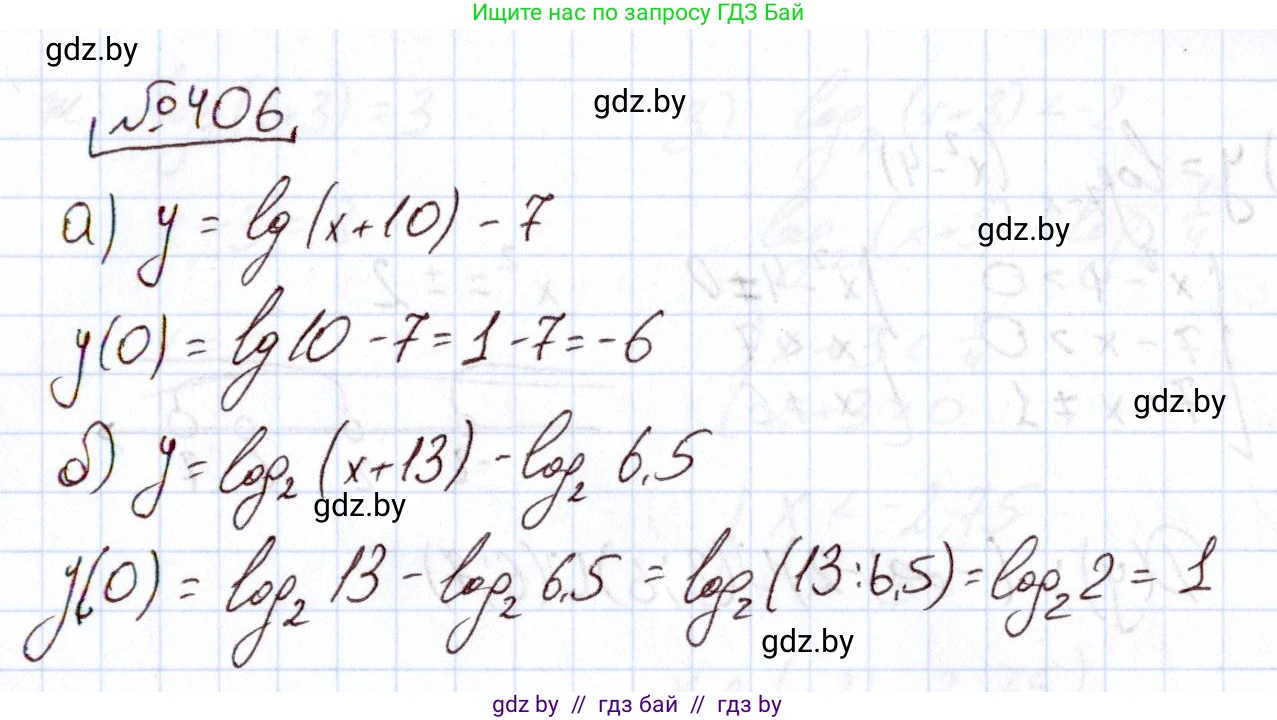 Ищите нас по запросу ГДЗ Бай
gdz.by
№406
gdz.by
а) y = lg(x+10) - 7
gdz.by
y(0) = lg10 - 7 = 1 - 7 = -6
gdz.by
б) y = log₂(x+13) - log₂ 6,5
gdz.by
y(0) = log₂ 13 - log₂ 6,5 = log₂(13:6,5) = log₂ 2 = 1
gdz.by
gdz by // гдз бай // гдз by